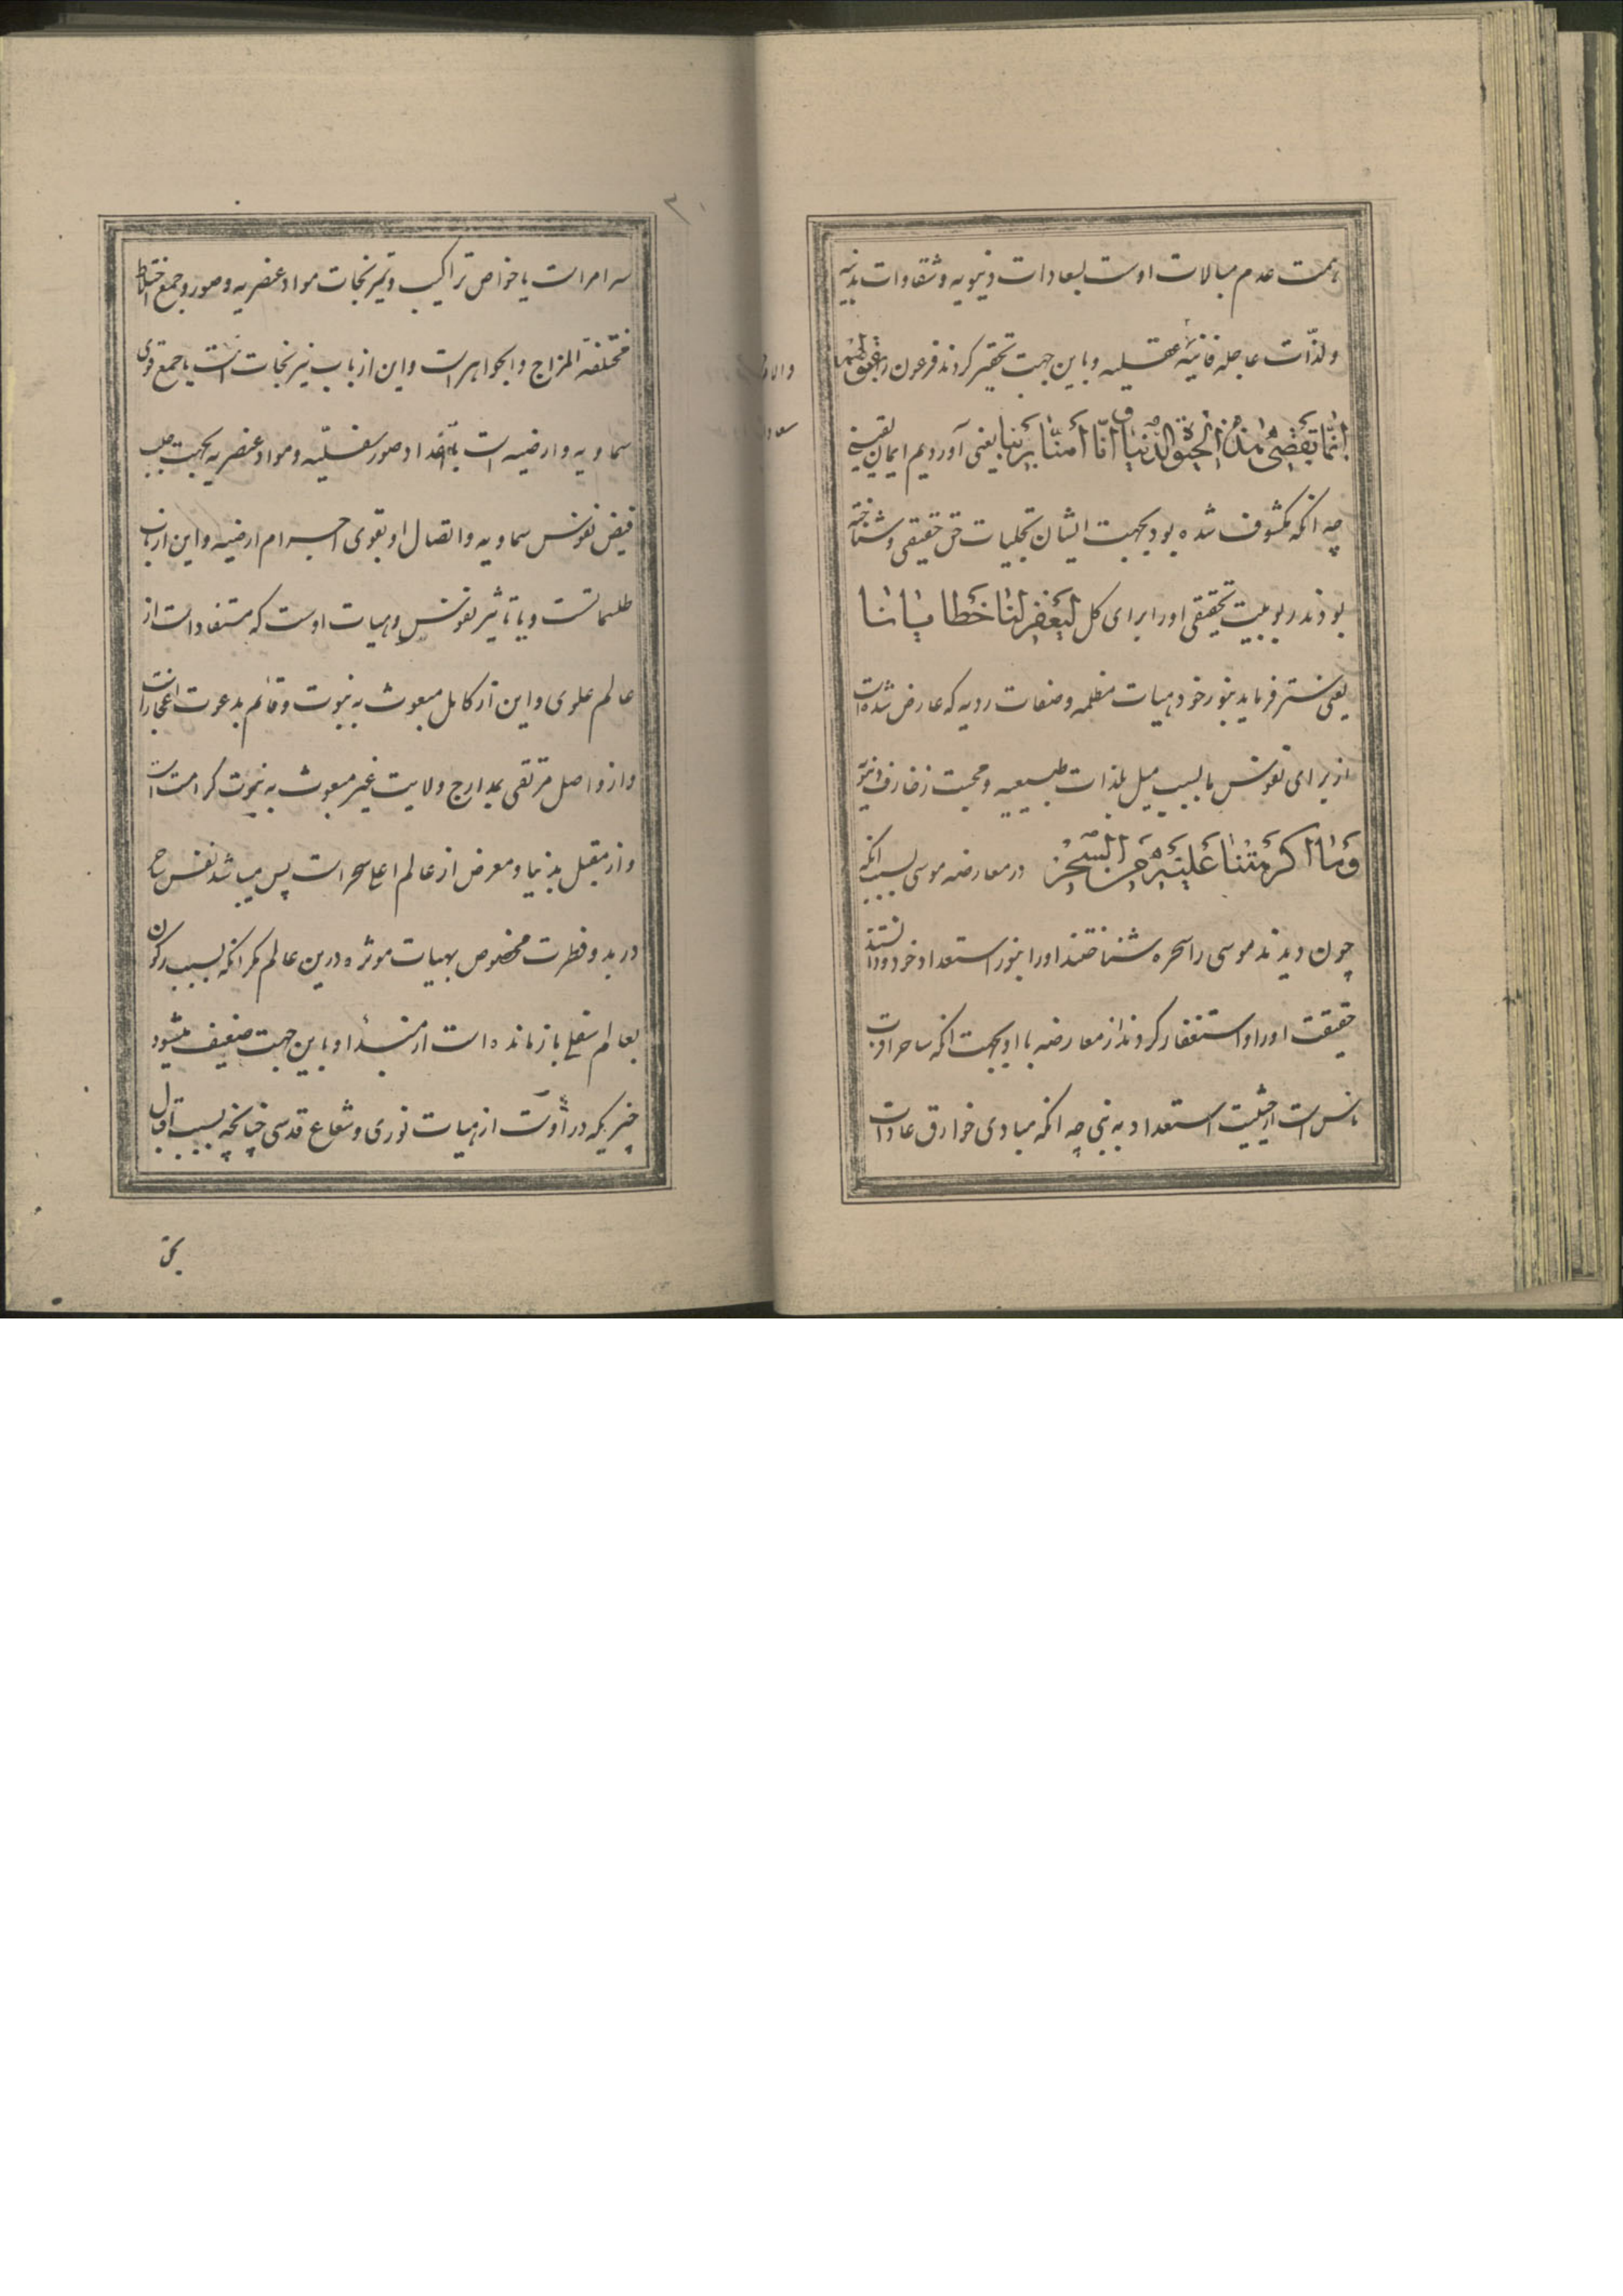 همت عدم مبالات اوست بسعادات دنیویه و شقاوات بدنیه
ولذّات عاجله فانیهٔ عقلیه و باین جهت تحقیر کردند فرعون را بقولهم
انّما تقضی هذه الحیوة الدنیا انّا آمنّا بربّنا یعنی آوردیم ایمان یقینی
چه انکه مکشوف شده بود بجهت ایشان تجلیات حق حقیقی و شناخته
بودند ربوبیت تحقیقی اورا برای کل لیغفر لنا خطایانا
یعنی ستر فرماید بنور خود هیات مظلمه و صفات ردیه که عارض شده است
از برای نفوس ما بسبب میل بلذات طبیعیه و محبت زخارف دنیویه
وما اکرهتنا علیه من السحر در معارضه موسی بسبب انکه
چون دیدند موسی را سحره شناختند اورا بنور استعداد خود و دانستند
حقیقت اورا و استغفار کردند از معارضه با او بجهت انکه ساحر اقرب
ناس است از حیثیت استعداد به نبی چه انکه مبادی خوارق عادات
سه امر است یا خواص تراکیب و تمزیجات مواد عنصریه و صور و جمع اخلاط
مختلفة المزاج والجواهر است واین از باب نیرنجات است یا جمع قوی
سماویه وارضیه است باعداد صور سفلیّه و مواد عنصریه بجهت جلب
فیض نفوس سماویه و اتصال او بقوی اجرام ارضیه و این از باب
طلسماتست و یا تاثیر نفوس و هیات اوست که مستفاد است از
عالم علوی و این از کامل مبعوث به نبوت و قائم بدعوت اعجاز است
و از واصل مرتقی بمدارج ولایت غیر مبعوث به نبوت کرامت است
و از مقبل بدنیا و معرض از عالم اعلی سحر است پس میباشد نفس ساحر
در بدو فطرت مخصوص بهیات موثره درین عالم مکر انکه بسبب رکون
بعالم سفلی بازمانده است از مبدأ و باین جهت ضعیف میشود
چیزیکه در اوست از هیات نوری و شعاع قدسی چنانچه بسبب اقبال